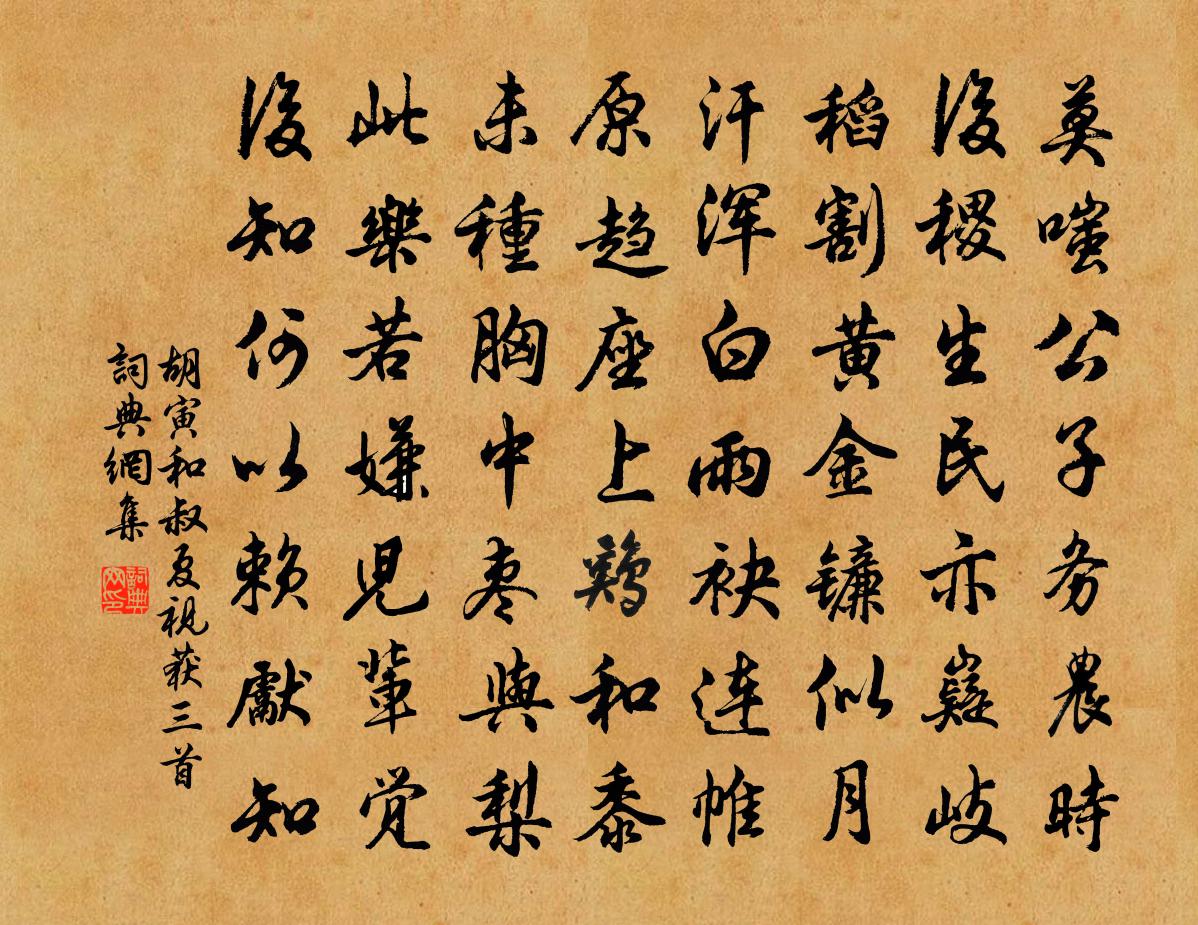 莫嗤公子务農時
後稷生民亦嶷岐
稻割黄金镰似月
汗浑白雨袂连帷
原趋座上鷄和黍
未種胸中枣與梨
此樂若嫌児輩覚
後知何以赖獻知
胡寅和叔夏視获三首
詞典網集
詞典网印